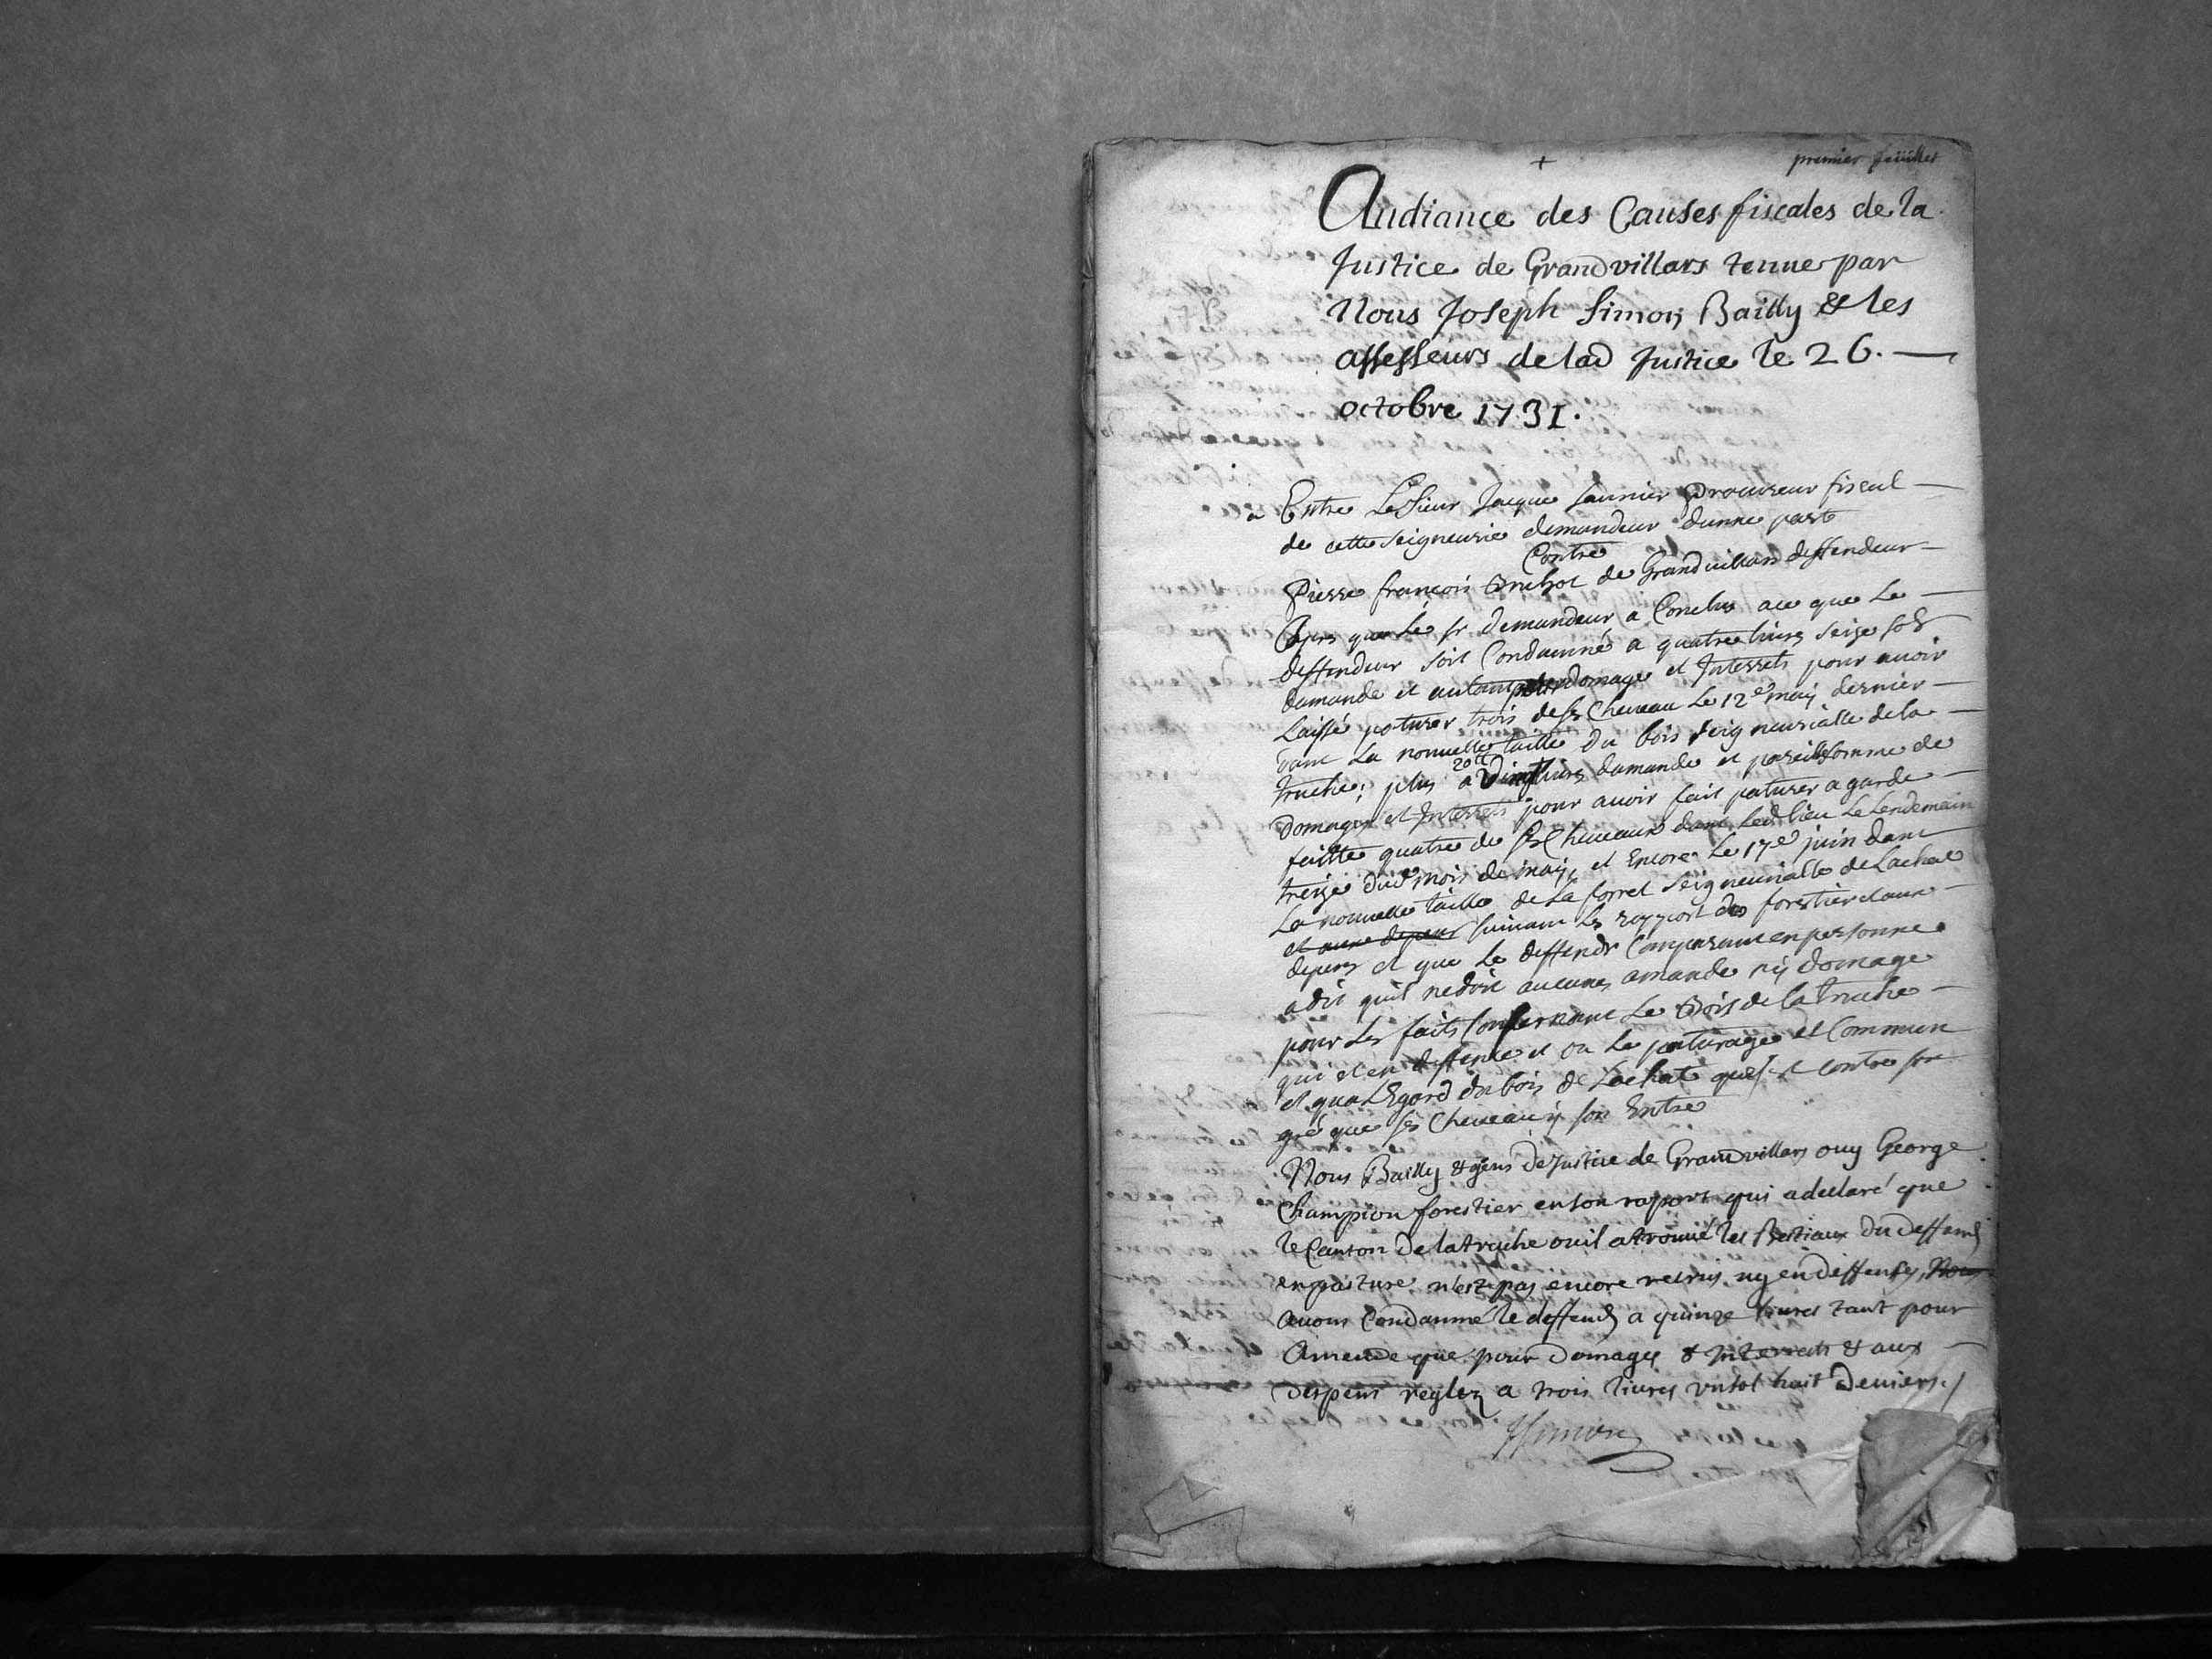 premier feüillet
Audiance des Causes fiscales de la
Justice de Grandvillars tenue par
Nous Joseph Simon Bailly & les
assesseurs de lad Justice le 26.
octobre 1731.
Entre Le Sieur Jacque Saunier Procureur fiscal
de cette seigneurie demandeur dunne part
Contre
Pierre françois de Grandvillars deffendeur
Apres que Le sr demandeur a Conclus ace que Le
deffendeur soit Condamné a quatre livres seize sols
damande et autant pour domage et Interrets pour avoir
Laissé paturer trois de ses Chevau Le 12e may dernier
dans La nouvelle taille du bois seigneurialle de la
truche; plus a 20 Vingt livres damande et pareille somme de
Domages et Interrets pour avoir fait paturer a garde
faitte quatre de ses Chevaux dans led lieu Le Lendemain
treize dud mois de may, et Encore Le 17e juin dans
La nouvelle taille de La forret seigneurialle de Lachat
et aux depens suivant Les rapport des forestier et aux
depens et que Le deffendr Comparant en personne
a dit quil ne doit aucunes amande ny domage
pour Les faits Conssernant Le Bois de la truche
qui et en deffence et ou Le paturage et Commun
et qua LEgard du bois de Lachat que set contre son
gré que ses Chevaux y son Entré
Nous Bailly & gens de Justice de Grandvillars ouy George
Champion forestier en son raport qui a declaré que
le Canton de la truche ou il a trouvé les Bestiaux du deffend
en pature n'est pas encore recrus ny en deffenses, Nous
avons Condanné le deffend a quinze livres tant pour
Amende que pour domages & Interrests & aux
despens reglez a trois livres un sol huit Deniers./
JSimon